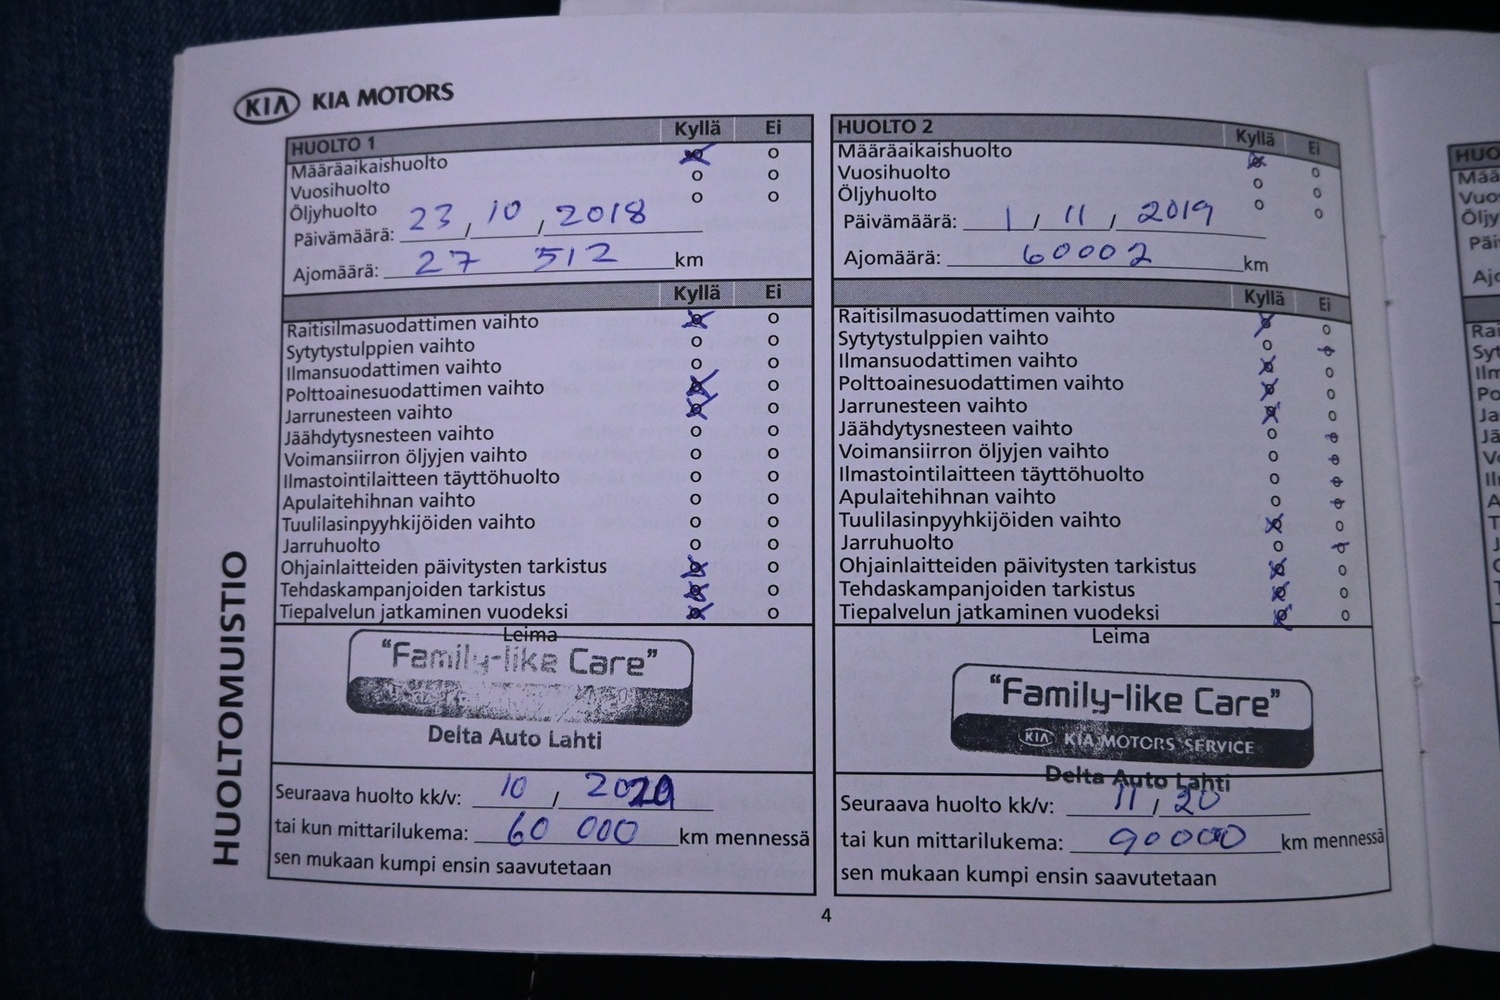 KIA KIA MOTORS
HUOLTOMUISTIO
HUOLTO 1 Kyllä Ei
Määräaikaishuolto o
Vuosihuolto o o
Öljyhuolto o o
Päivämäärä: 23 / 10 / 2018
Ajomäärä: 27 512 km
Kyllä Ei
Raitisilmasuodattimen vaihto o
Sytytystulppien vaihto o o
Ilmansuodattimen vaihto o o
Polttoainesuodattimen vaihto o
Jarrunesteen vaihto o
Jäähdytysnesteen vaihto o o
Voimansiirron öljyjen vaihto o o
Ilmastointilaitteen täyttöhuolto o o
Apulaitehihnan vaihto o o
Tuulilasinpyyhkijöiden vaihto o o
Jarruhuolto o o
Ohjainlaitteiden päivitysten tarkistus o
Tehdaskampanjoiden tarkistus o
Tiepalvelun jatkaminen vuodeksi o
Leima
"Family-like Care"
Delta Auto Lahti
Seuraava huolto kk/v: 10 / 2020
tai kun mittarilukema: 60 000 km mennessä
sen mukaan kumpi ensin saavutetaan
HUOLTO 2 Kyllä Ei
Määräaikaishuolto o
Vuosihuolto o o
Öljyhuolto o o
Päivämäärä: 1 / 11 / 2019
Ajomäärä: 60002 km
Kyllä Ei
Raitisilmasuodattimen vaihto o
Sytytystulppien vaihto o
Ilmansuodattimen vaihto o
Polttoainesuodattimen vaihto o
Jarrunesteen vaihto o
Jäähdytysnesteen vaihto o
Voimansiirron öljyjen vaihto o
Ilmastointilaitteen täyttöhuolto o
Apulaitehihnan vaihto o
Tuulilasinpyyhkijöiden vaihto o
Jarruhuolto o
Ohjainlaitteiden päivitysten tarkistus o
Tehdaskampanjoiden tarkistus o
Tiepalvelun jatkaminen vuodeksi o
Leima
"Family-like Care"
KIA KIA MOTORS SERVICE
Delta Auto Lahti
Seuraava huolto kk/v: 11 / 20
tai kun mittarilukema: 90000 km mennessä
sen mukaan kumpi ensin saavutetaan
4